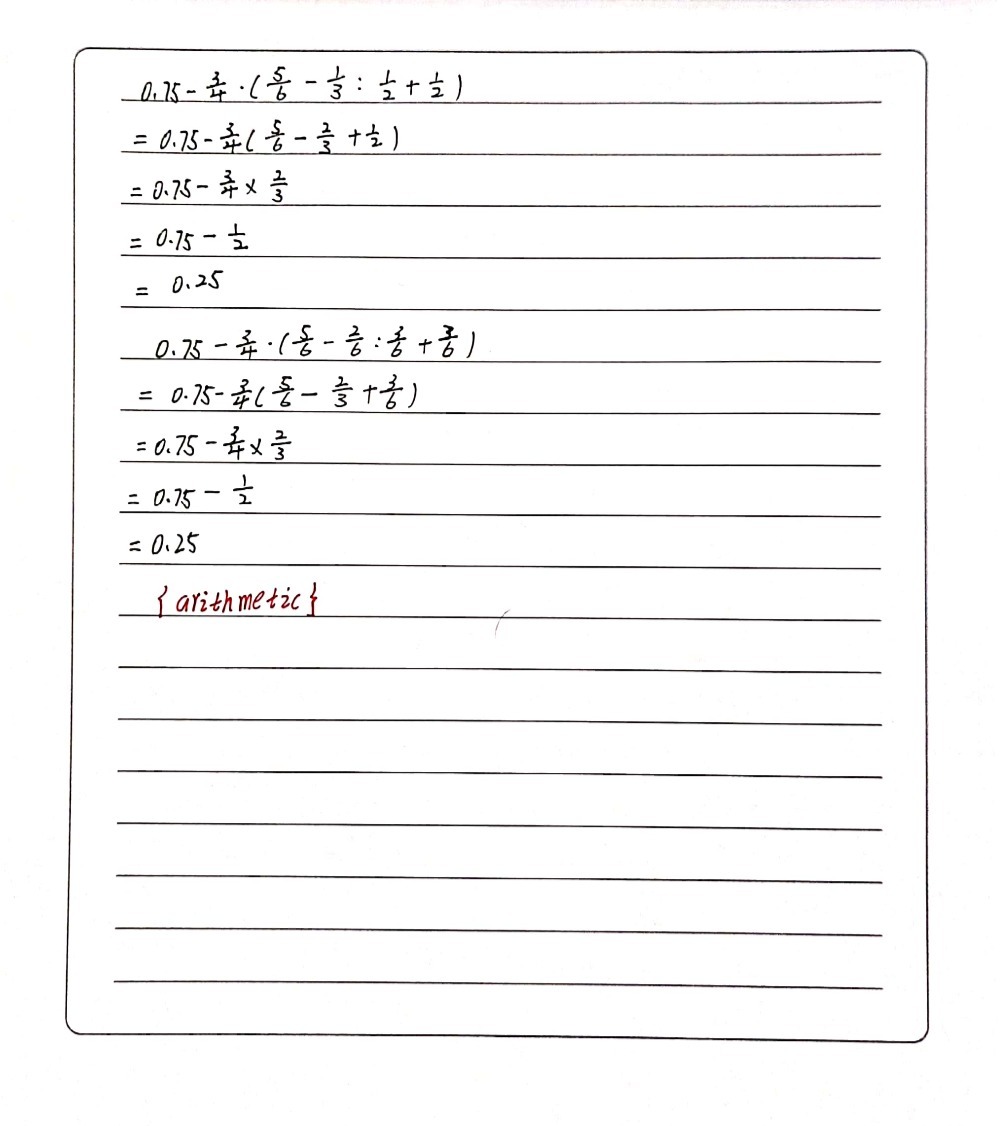 0.75 - 3/4 · ( 5/6 - 1/3 : 1/2 + 1/2 )
= 0.75 - 3/4 ( 5/6 - 2/3 + 1/2 )
= 0.75 - 3/4 × 2/3
= 0.75 - 1/2
= 0.25
0.75 - 3/4 · ( 5/6 - 2/6 : 3/6 + 3/6 )
= 0.75 - 3/4 ( 5/6 - 2/3 + 3/6 )
= 0.75 - 3/4 × 2/3
= 0.75 - 1/2
= 0.25
{ arithmetic }